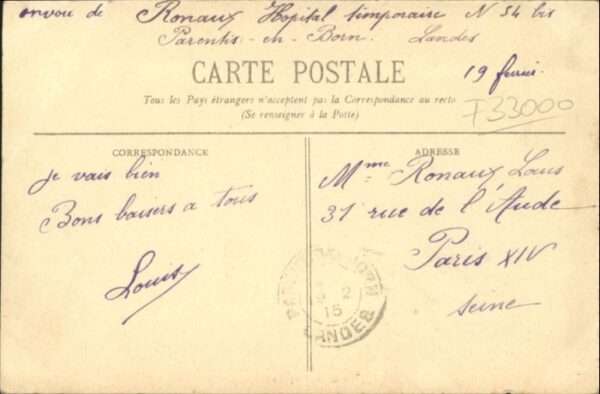 envoi de Ronaux Hopital temporaire N 54 bis
Parentis-en-Born. Landes
CARTE POSTALE
19 fevrier.
Tous les Pays étrangers n'acceptent pas la Correspondance au recto
(Se renseigner à la Poste)
F33000
CORRESPONDANCE
je vais bien
Bons baisers a tous
Louis
ADRESSE
Mme Ronaux Louis
31 rue de l'Aude
Paris XIV
Seine
2
15
LANDES